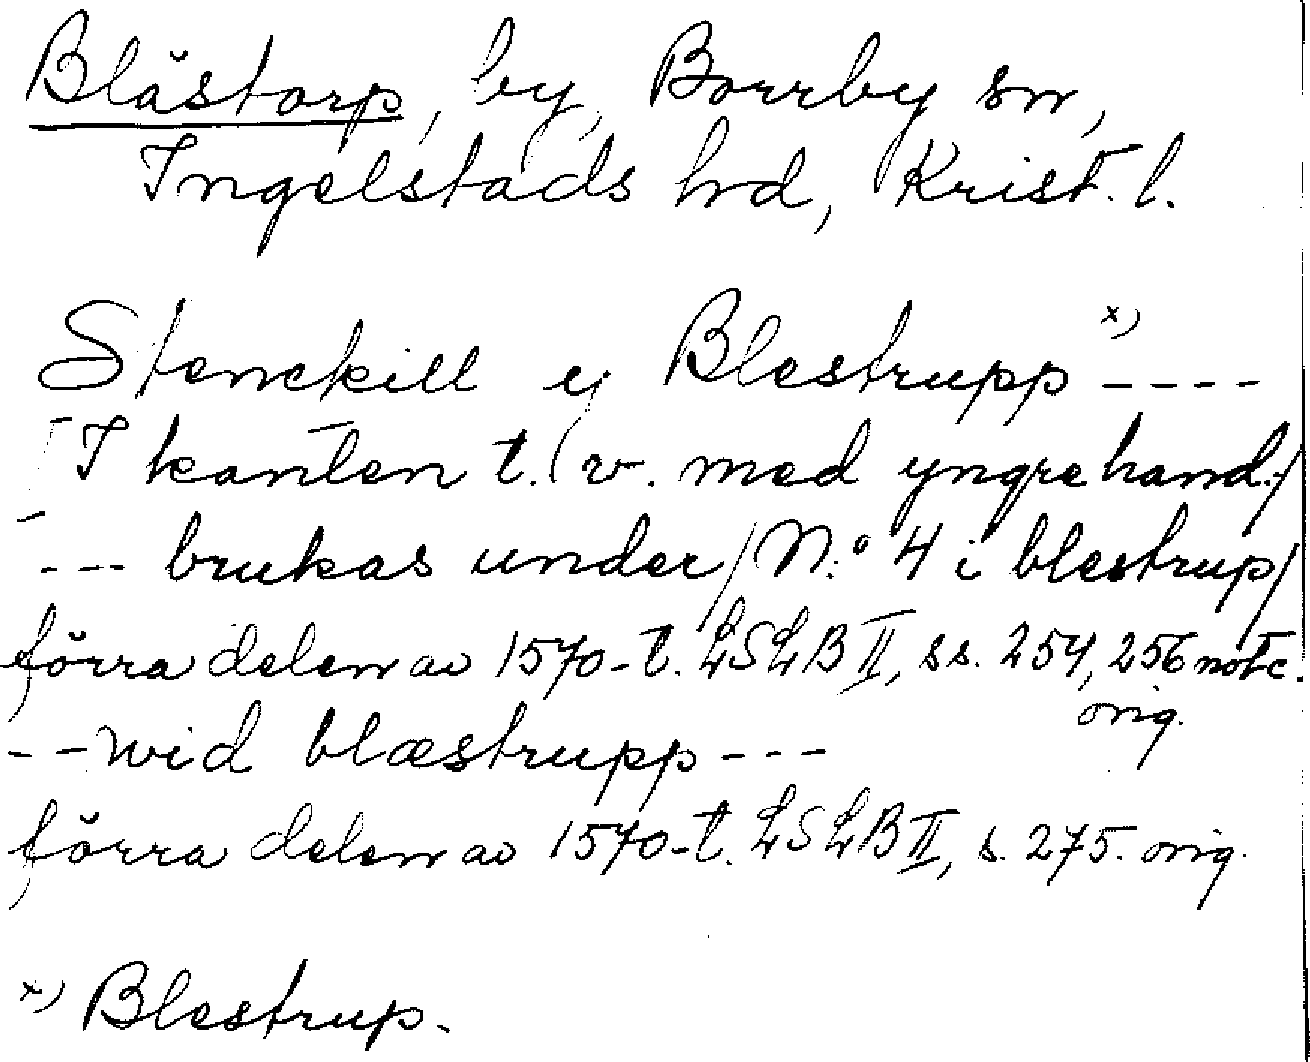 Blästorp, by, Borrby sn,
Ingelstads hd, Krist. l.
Stenckill y Blestrupp x) ----
/I kanten t. v. med yngre hand:/
--- brukas under / N:o 4 i blestrup/
förra delen av 1570-t. LSLB II, ss. 254, 256 not c.
orig.
-- wid blæstrupp ---
förra delen av 1570-t. LSLB II, s. 275. orig.
x) Blestrup.